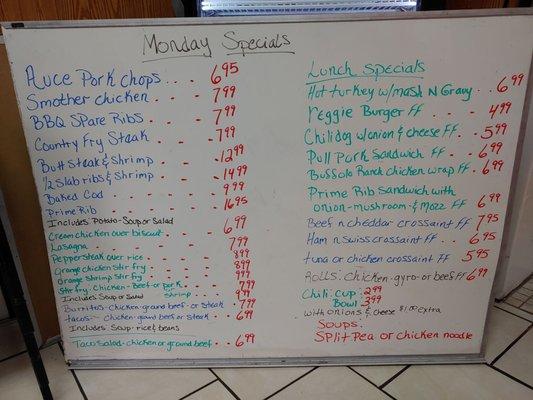 Monday Specials
Auce Pork Chops . . . 6.95
Smother chicken . . . 7.99
BBQ Spare Ribs . . . 7.99
Country Fry Steak . . 7.99
Butt Steak & Shrimp . . . 12.99
1/2 Slab ribs & Shrimp . . . 14.99
Baked Cod . . . 9.99
Prime Rib . . . 16.95
Includes Potato-Soup or Salad
Cream chicken over biscuit . . 6.99
Lasagna . . . 7.99
Peppersteak over rice . . . 8.99
Orange chicken Stir fry . . . 8.99
Orange Shrimp Stir fry . . . 9.99
Stir fry-Chicken-Beef or pork . . 7.99
Includes Soup or Salad Shrimp . . 9.99
Burritos-Chicken-ground beef-or steak . 7.99
tacos-chicken-ground beef or steak . . 6.99
Includes: Soup-rice & beans
Taco Salad-chicken or ground beef . . 6.99
Lunch Specials
Hot turkey w/mash N Gravy . . . 6.99
Veggie Burger FF . . . 4.99
Chilidog w/onion & cheese FF . . 5.99
Pull Pork Sandwich FF . . 6.99
Buffalo Ranch chicken wrap FF . 6.99
Prime Rib Sandwich with
onion-mushroom-& Mozz FF 6.99
Beef n cheddar crossaint FF 7.95
Ham n swiss crossaint FF . . 6.95
tuna or chicken crossaint FF 5.95
Rolls: chicken-gyro-or beef FF 6.99
Chili: cup: 2.99
Bowl 3.99
with onions & cheese $1.00 extra
Soups:
Split Pea or chicken noodle